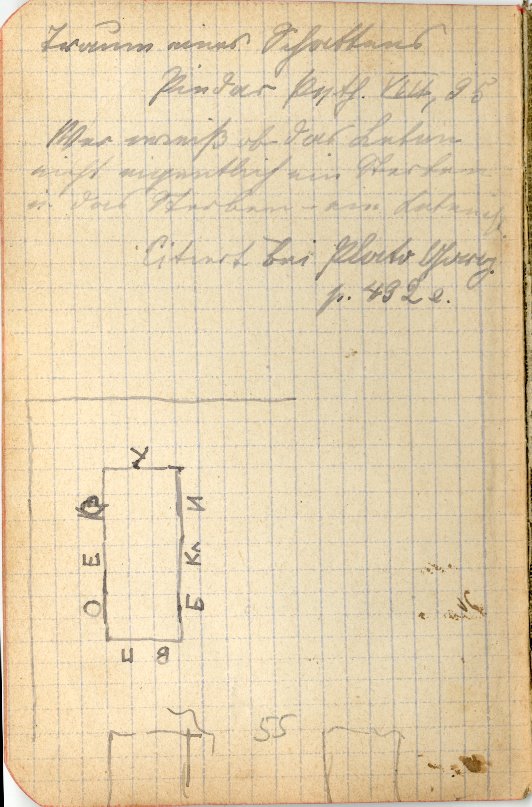 Traum eines Schattens
Pindar Pyth. VIII, 95
Wer weiß ob das Leben
nicht eigentlich ein Sterben
u. das Sterben - ein Leben ist
Citiert bei Plato Gorg.
p. 492 e.
У
И
Е Кл
О Б
Ц В
55